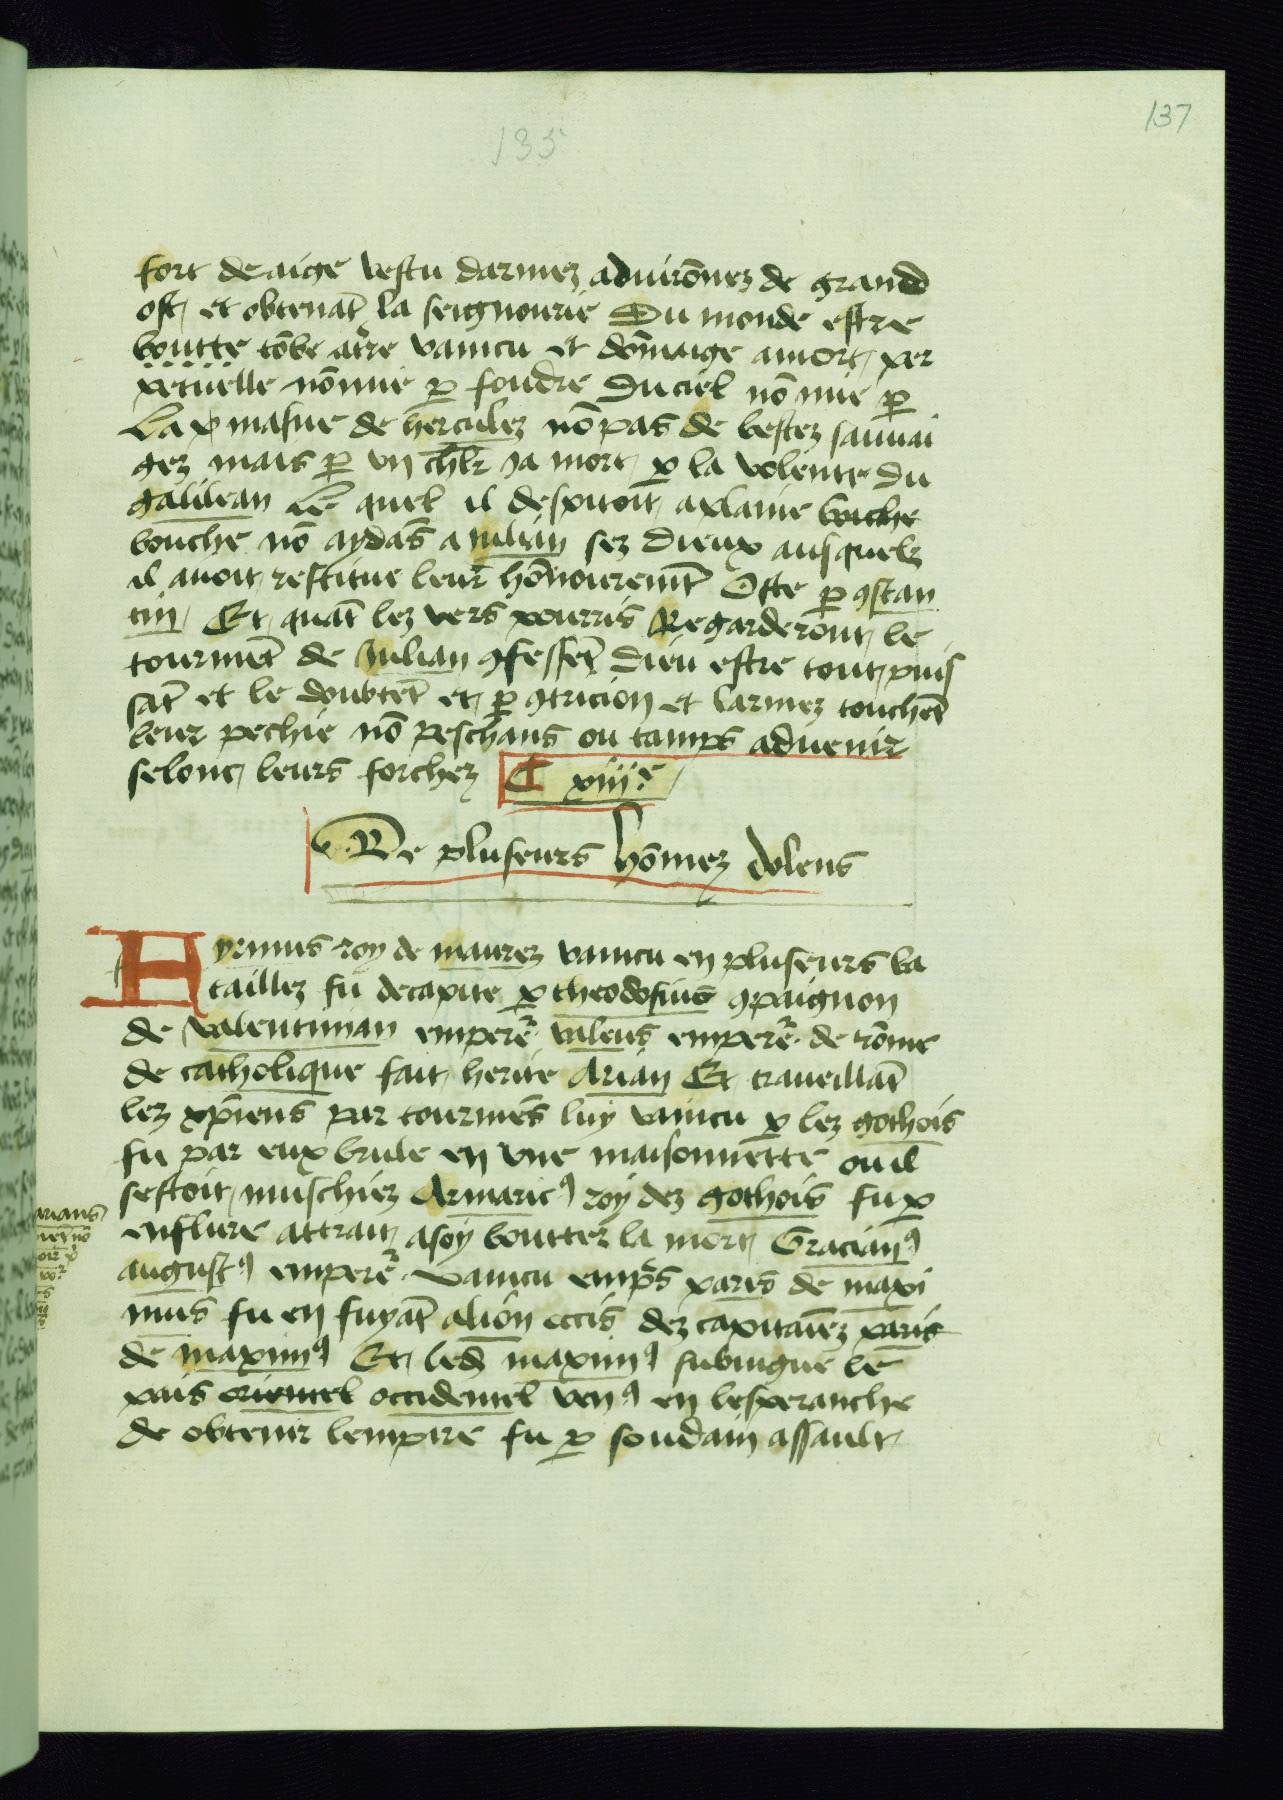 137
135
fort de aige vestu darmez advirōnez de grand
ost et obtenāt la seignourie Du monde estre
boutte tōbe at̄re vaincu et dōmaige amort per
petuelle nōmie p̱ foudre Du ciel nō mie p̱
La masue de herculez nō pas de bestez sauvai
gez mais p̱ vn chl̄r ja mort p̱ la volente du
galilean Le quel il despitoit a plaine boiche
bouche nō aydās a iulian sez Dieux ausquelz
il avoit restitue leur hōnouremēt Oste p̱ ꝯstan
tin Et quāt lez vers pourris Regarderont le
tourmēt de iulian ꝯfessēt Dieu estre tout puis
sāt et le doubtēt et p̱ ꝯtricion et larmez touchēt
leur pechie nō peschans ou tamps advenir
selonc leurs forchez C xiiijᵉ
De pluseurs hōmez dolens
Hyrmus roy de maurez vaincu en pluseurs ba
taillez fu decapite p̱ theodosius ꝯpaignon
de valentinian emperē valens emperē de rōme
de catholique fait herite Arian Et traveillāt
lez xp̄iens par tourmēs luy vaincu p̱ lez gothois
fu par eux brule en vne maisonnette ou il
sestoit muschiez Armaricꝰ roy dez gothois fu p̱
enflure attrait a soy boutter la mort Gracianꝰ
augustꝰ emperē vaincu emp̄s paris de maxi
mus fu en fuyāt a lion occis dez capitaiēz paris
de maximꝰ Et led̄ maximꝰ subiugue le
pais orientel occidentel venꝰ en lesperanche
de obtenir lempire fu p̱ soudain assault